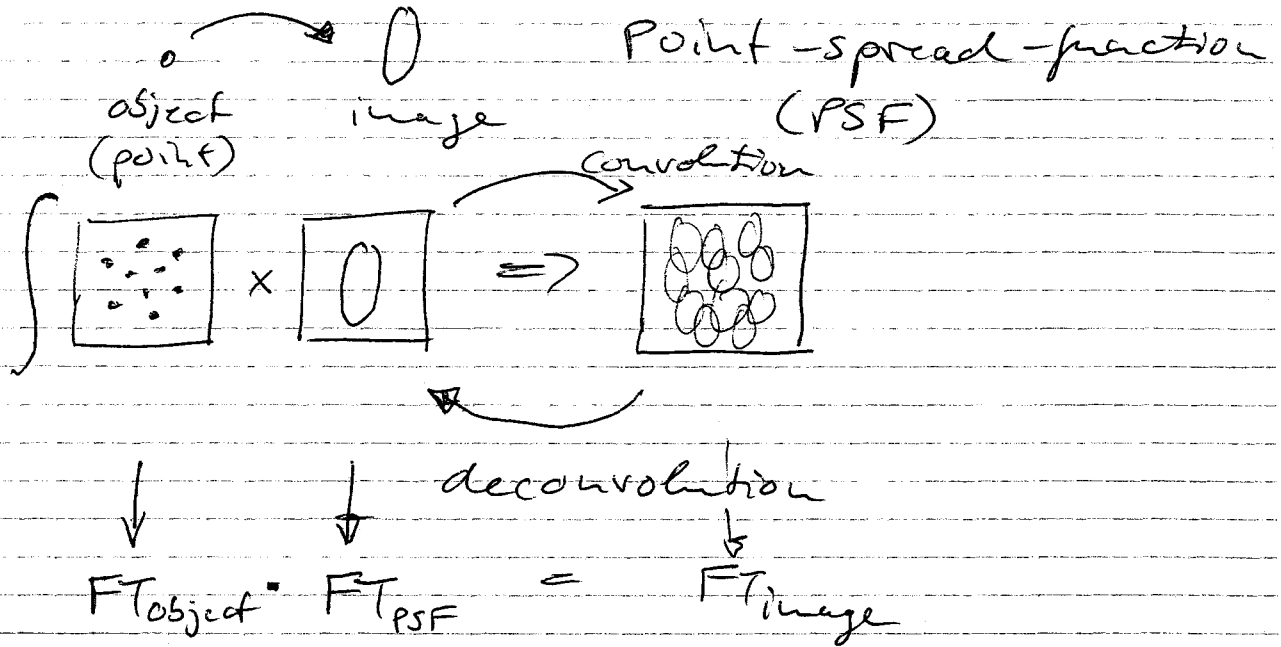 Point-spread-function
object image (PSF)
(point) convolution
∫ × =>
deconvolution
FTobject · FTPSF = FTimage